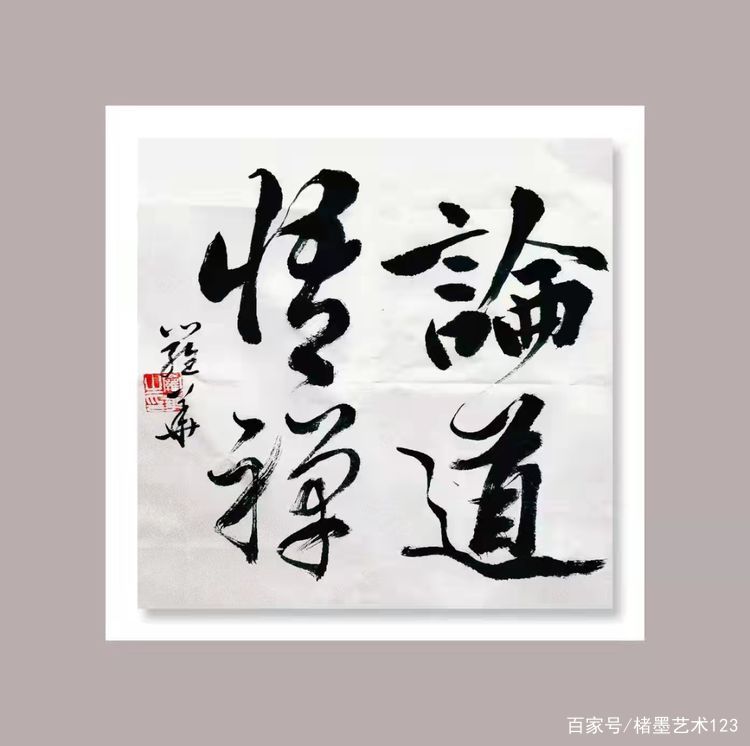 論道
悟禅
百家号/楮墨艺术123